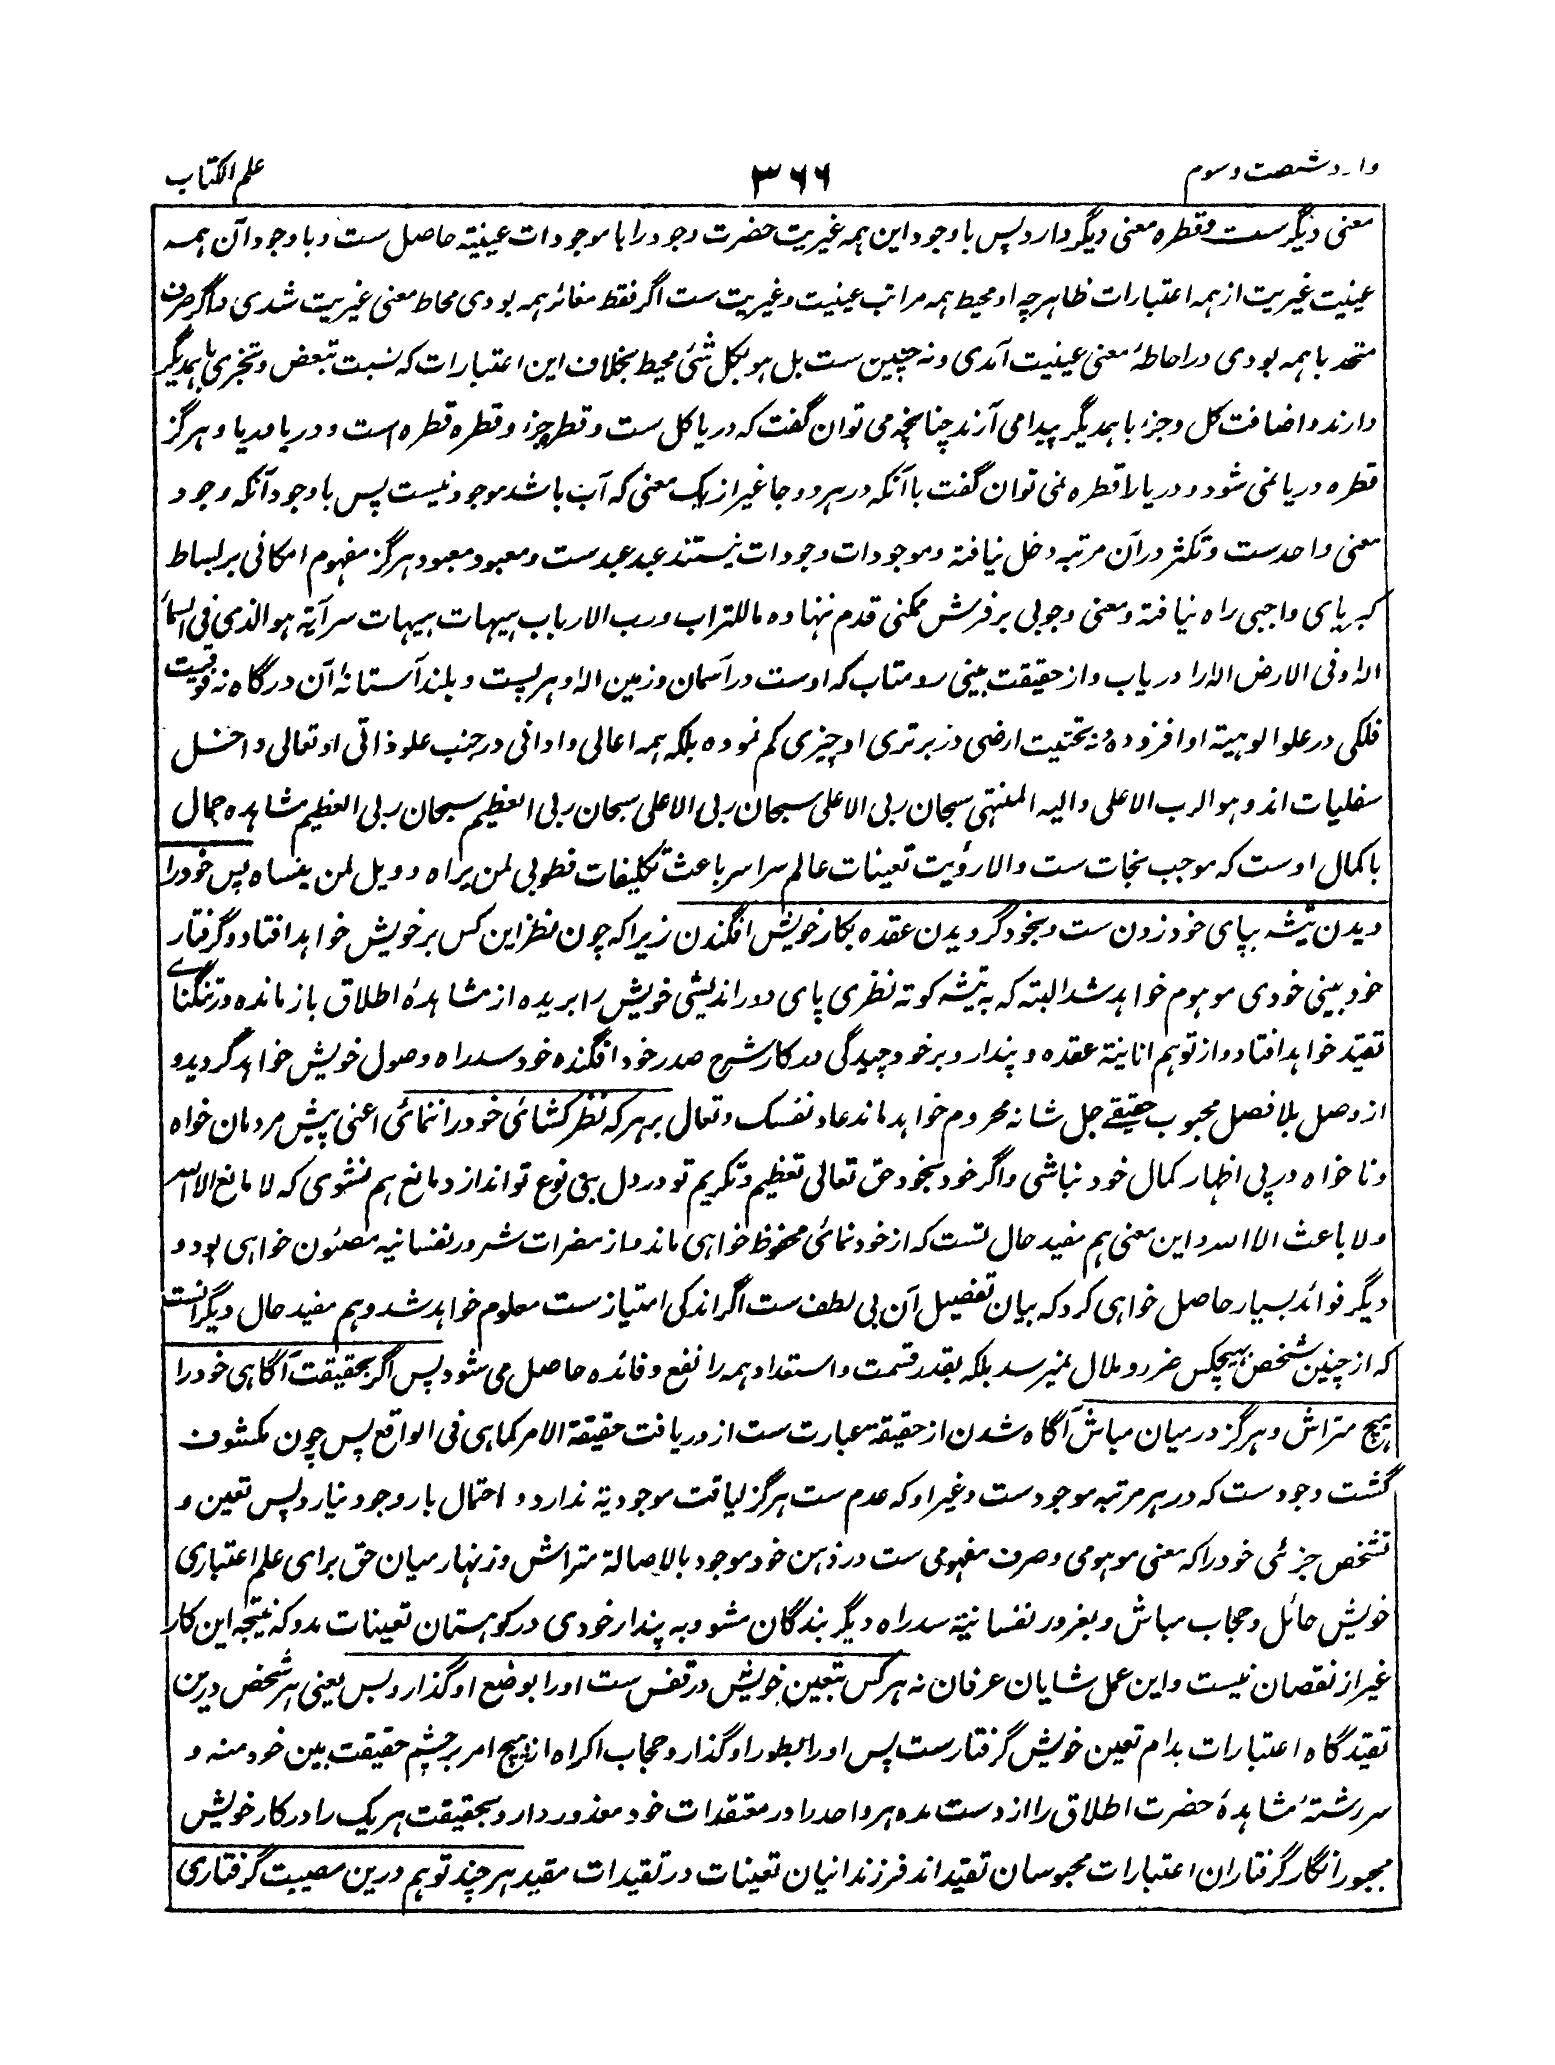 وارد شصت و سوم
۳۶۶
علم الکتاب
معنی دیگرست و قطره معنی دیگر دارد پس با وجود این همه غیریت حضرت وجود را با موجودات عینیة حاصل ست و با وجود آن همه
عینیت غیریت از همه اعتبارات ظاهر چه او محیط همه مراتب عینیت و غیریت ست اگر فقط مغائر همه بودی محاط معنی غیریت شدی و اگر صرف
متحد با همه بودی در احاطهٔ معنی عینیت آمدی و نه چنین ست بل هو بکل شئ محیط بخلاف این اعتبارات که نسبت تبعض و تجزی با همدیگر
دارند و اضافت کل و جزء با همدیگر پیدا می آرند چنانچه می توان گفت که دریا کل ست و قطره جزء و قطره قطره است و دریا دریا و هرگز
قطره دریا نمی شود و دریا را قطره نمی توان گفت با آنکه در هر دو جا غیر از یک معنی که آب باشد موجود نیست پس با وجود آنکه وجود
معنی واحدست و تکثر در آن مرتبه دخل نیافته و موجودات وجودات نیستند عبد عبدست و معبود معبود هرگز مفهوم امکانی بر بساط
کبریای واجبی راه نیافته و معنی وجوبی بر فرش ممکنی قدم ننهاده ما للتراب و رب الارباب هیهات هیهات سر آیة هو الذی فی السماء
اله و فی الارض اله را دریاب و از حقیقت بینی رو متاب که اوست در آسمان و زمین اله و هر پست و بلند آستانهٔ آن درگاه نه فوقیت
فلکی در علو الوهیة او افزوده و نه تحتیت ارضی در برتری او چیزی کم نموده بلکه همه اعالی و ادانی در جنب علو ذاتی او تعالی داخل
سفلیات اند و هو الرب الاعلی و الیه المنتهی سبحان ربی الاعلی سبحان ربی الاعلی سبحان ربی العظیم سبحان ربی العظیم مشاهده جمال
با کمال اوست که موجب نجات ست و الا رؤیت تعینات عالم سراسر باعث تکلیفات فطوبی لمن یراه و ویل لمن ینساه پس خود را
دیدن تیشه بپای خود زدن ست و بخود گردیدن عقده بکار خویش افگندن زیرا که چون نظر این کس بر خویش خواهد افتاد و گرفتار
خود بینی خودی موهوم خواهد شد البته که به تیشه کوته نظری پای دور اندیشی خویش را بریده از مشاهدهٔ اطلاق باز مانده در تنگنای
تقید خواهد افتاد و از توهم انانیة عقده و پندار و بر خود چیدگی در کار شرح صدر خود افگنده خود سد راه وصول خویش خواهد گردید و
از وصل بلا فصل محبوب حقیقے جل شانه محروم خواهد ماند عاد نفسک و تعال بر هر که نظر کشائی خود را ننمائی اعنی پیش مردمان خواه
و ناخواه در پی اظهار کمال خود نباشی و اگر خود بخود حق تعالی تعظیم و تکریم تو در دل بنی نوع تو اندازد مانع هم نشوی که لا مانع الا الله
و لا باعث الا الله و این معنی هم مفید حال تست که از خود نمائی محفوظ خواهی ماند و از مضرات شرور نفسانیه مصئون خواهی بود و
دیگر فوائد بسیار حاصل خواهی کرد که بیان تفصیل آن بی لطف ست اگر اندکی امتیاز ست معلوم خواهد شد و هم مفید حال دیگرانست
که از چنین شخص بهیچکس ضرر و ملال نمیرسد بلکه بقدر قسمت و استعداد همه را نفع و فائده حاصل می شود پس اگر بحقیقت آگاهی خود را
هیچ متراش و هرگز در میان مباش آگاه شدن از حقیقة عبارت ست از دریافت حقیقة الامر کما هی فی الواقع پس چون مکشوف
گشت وجودست که در هر مرتبه موجودست و غیر او که عدم ست هرگز لیاقت موجودیة ندارد و احتمال بار وجود نیارد پس تعین و
تشخص جزئی خود را که معنی موهومی و صرف مفهومی ست در ذهن خود موجود بالاصالة متراش و زنهار میان حق برای علم اعتباری
خویش حائل و حجاب مباش و بغرور نفسانیة سد راه دیگر بندگان مشو و به پندار خودی در کوهستان تعینات مدو که نتیجه این کار
غیر از نقصان نیست و این عمل شایان عرفان نه هر کس بتعین خویش در قفس ست او را بوضع او گذار و بس یعنی هر شخص درین
تقید گاه اعتبارات بدام تعین خویش گرفتارست پس او را بطور او گذار و حجاب اکراه از هیچ امر بر چشم حقیقت بین خود منه و
سررشتهٔ مشاهدهٔ حضرت اطلاق را از دست مده هر واحد را در معتقدات خود معذور دار و بحقیقت هر یک را در کار خویش
مجبور انگار گرفتاران اعتبارات محبوسان تقیداند فرزندانیان تعینات در تقیدات مقید هر چند تو هم درین مصیبت گرفتاری